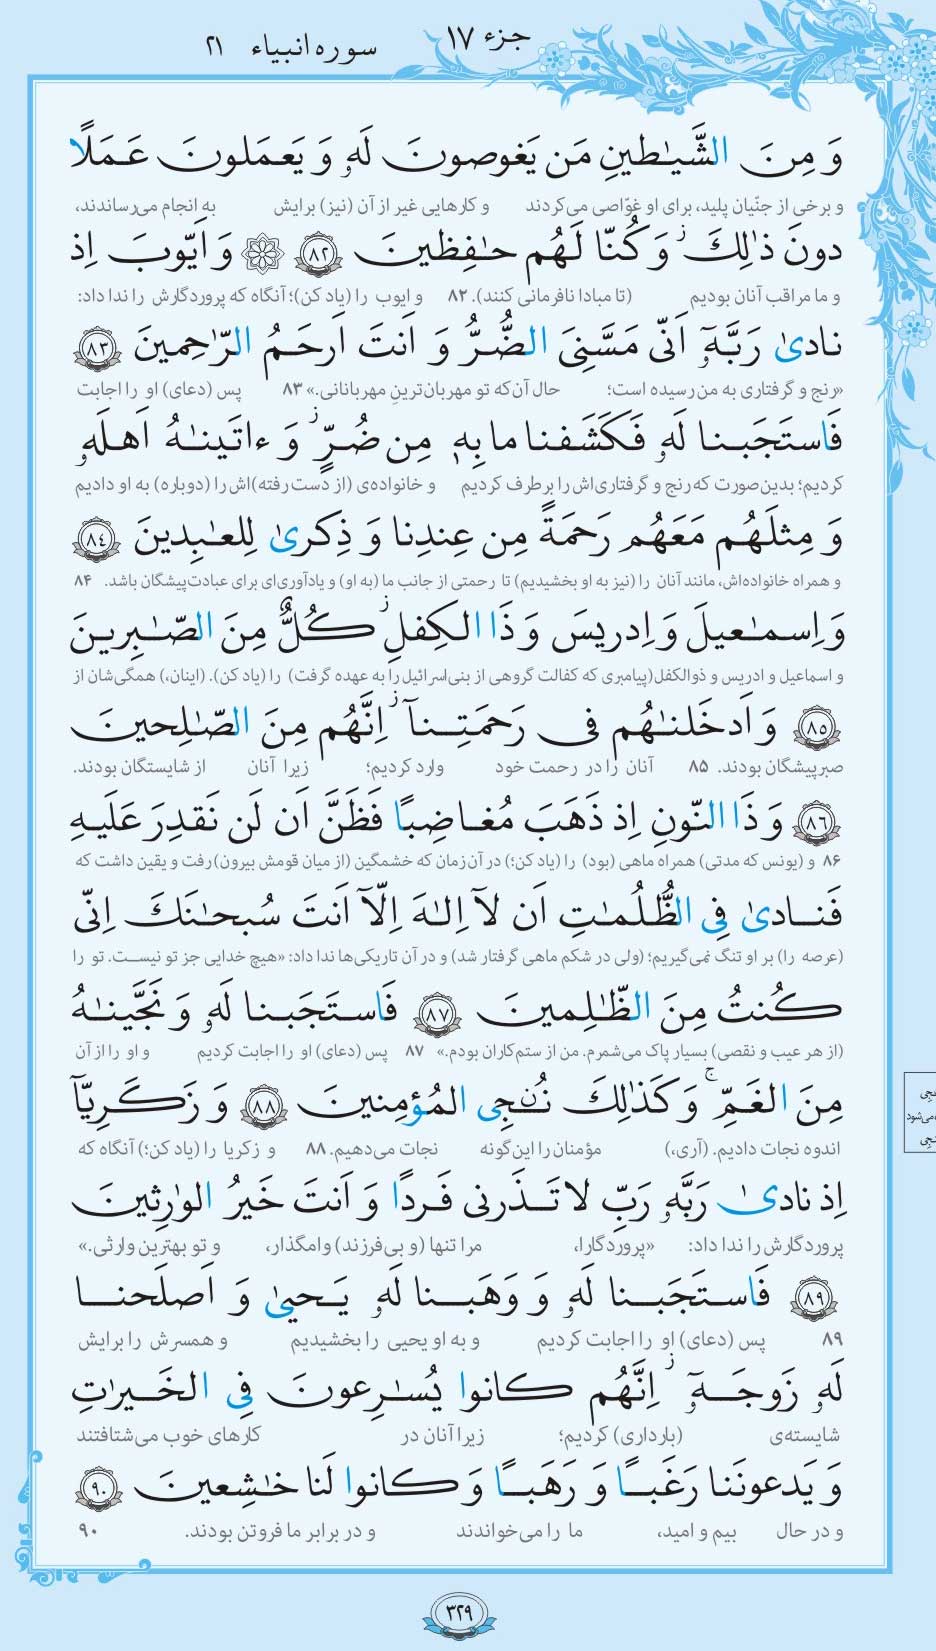 جزء ۱۷
سوره انبیاء ۲۱
وَ مِنَ الشَّیـٰطینِ مَن یَغوصونَ لَهٗ وَ یَعمَلونَ عَمَلًا
و برخی از جنّیان پلید، برای او غوّاصی می‌کردند و کارهایی غیر از آن (نیز) برایش به انجام می‌رساندند،
دونَ ذٰلِکَ ز وَ کُنّا لَهُم حـٰفِظینَ ﴿۸۲﴾ ۞ وَ اَیّوبَ اِذ
و ما مراقب آنان بودیم (تا مبادا نافرمانی کنند). ۸۲ و ایوب را (یاد کن)؛ آنگاه که پروردگارش را ندا داد:
نادیٰ رَبَّهٗٓ اَنّی مَسَّنِیَ الضُّرُّ وَ اَنتَ اَرحَمُ الرّٰحِمینَ ﴿۸۳﴾
«رنج و گرفتاری به من رسیده است؛ حال آن‌که تو مهربان‌ترینِ مهربانانی.» ۸۳ پس (دعای) او را اجابت
فَاستَجَبنا لَهٗ فَکَشَفنا ما بِهٖ مِن ضُرٍّ ز وَ ءاتَینـٰهُ اَهلَهٗ
کردیم؛ بدین‌صورت که رنج و گرفتاری‌اش را برطرف کردیم و خانواده‌ی (از دست رفته)اش را (دوباره) به او دادیم
وَ مِثلَهُم مَعَهُم رَحمَةً مِن عِندِنا وَ ذِکریٰ لِلعـٰبِدینَ ﴿۸۴﴾
و همراه خانواده‌اش، مانند آنان را (نیز به او بخشیدیم) تا رحمتی از جانب ما (به او) و یادآوری‌ای برای عبادت‌پیشگان باشد. ۸۴
وَ اِسمـٰعیلَ وَ اِدریسَ وَ ذَا الکِفلِ ز کُلٌّ مِنَ الصّـٰبِرینَ
و اسماعیل و ادریس و ذوالکفل(پیامبری که کفالت گروهی از بنی‌اسرائیل را به عهده گرفت) را (یاد کن). (اینان،) همگی‌شان از
﴿۸۵﴾ وَ اَدخَلنـٰهُم فی رَحمَتِنآ ز اِنَّهُم مِنَ الصّـٰلِحینَ
صبرپیشگان بودند. ۸۵ آنان را در رحمت خود وارد کردیم؛ زیرا آنان از شایستگان بودند.
﴿۸۶﴾ وَ ذَا النّونِ اِذ ذَهَبَ مُغاضِبًا فَظَنَّ اَن لَن نَقدِرَ عَلَیهِ
۸۶ و (یونس که مدتی) همراه ماهی (بود) را (یاد کن؛) در آن زمان که خشمگین (از میان قومش بیرون) رفت و یقین داشت که
فَنادیٰ فِی الظُّلُمـٰتِ اَن لآ اِلـٰهَ اِلّآ اَنتَ سُبحـٰنَکَ اِنّی
(عرصه را) بر او تنگ نمی‌گیریم؛ (ولی در شکم ماهی گرفتار شد) و در آن تاریکی‌ها ندا داد: «هیچ خدایی جز تو نیست. تو را
کُنتُ مِنَ الظّـٰلِمینَ ﴿۸۷﴾ فَاستَجَبنا لَهٗ وَ نَجَّینـٰهُ
(از هر عیب و نقصی) بسیار پاک می‌شمرم. من از ستم‌کاران بودم.» ۸۷ پس (دعای) او را اجابت کردیم و او را از آن
مِنَ الغَمِّ ج وَ کَذٰلِکَ نُنـجِی المُؤمِنینَ ﴿۸۸﴾ وَ زَکَرِیّآ
اندوه نجات دادیم. (آری،) مؤمنان را این‌گونه نجات می‌دهیم. ۸۸ و زکریا را (یاد کن؛) آنگاه که
اِذ نادیٰ رَبَّهٗ رَبِّ لا تَذَرنی فَردًا وَ اَنتَ خَیرُ الوٰرِثینَ
پروردگارش را ندا داد: «پروردگارا، مرا تنها (و بی‌فرزند) وامگذار، و تو بهترین وارثی.»
﴿۸۹﴾ فَاستَجَبنا لَهٗ وَ وَهَبنا لَهٗ یَحییٰ وَ اَصلَحنا
۸۹ پس (دعای) او را اجابت کردیم و به او یحیی را بخشیدیم و همسرش را برایش
لَهٗ زَوجَهٗٓ ز اِنَّهُم کانوا یُسـٰرِعونَ فِی الخَیرٰتِ
شایسته‌ی (بارداری) کردیم؛ زیرا آنان در کارهای خوب می‌شتافتند
وَ یَدعونَنا رَغَبًا وَ رَهَبًا وَ کانوا لَنا خـٰشِعینَ ﴿۹۰﴾
و در حال بیم و امید، ما را می‌خواندند و در برابر ما فروتن بودند. ۹۰
۳۲۹